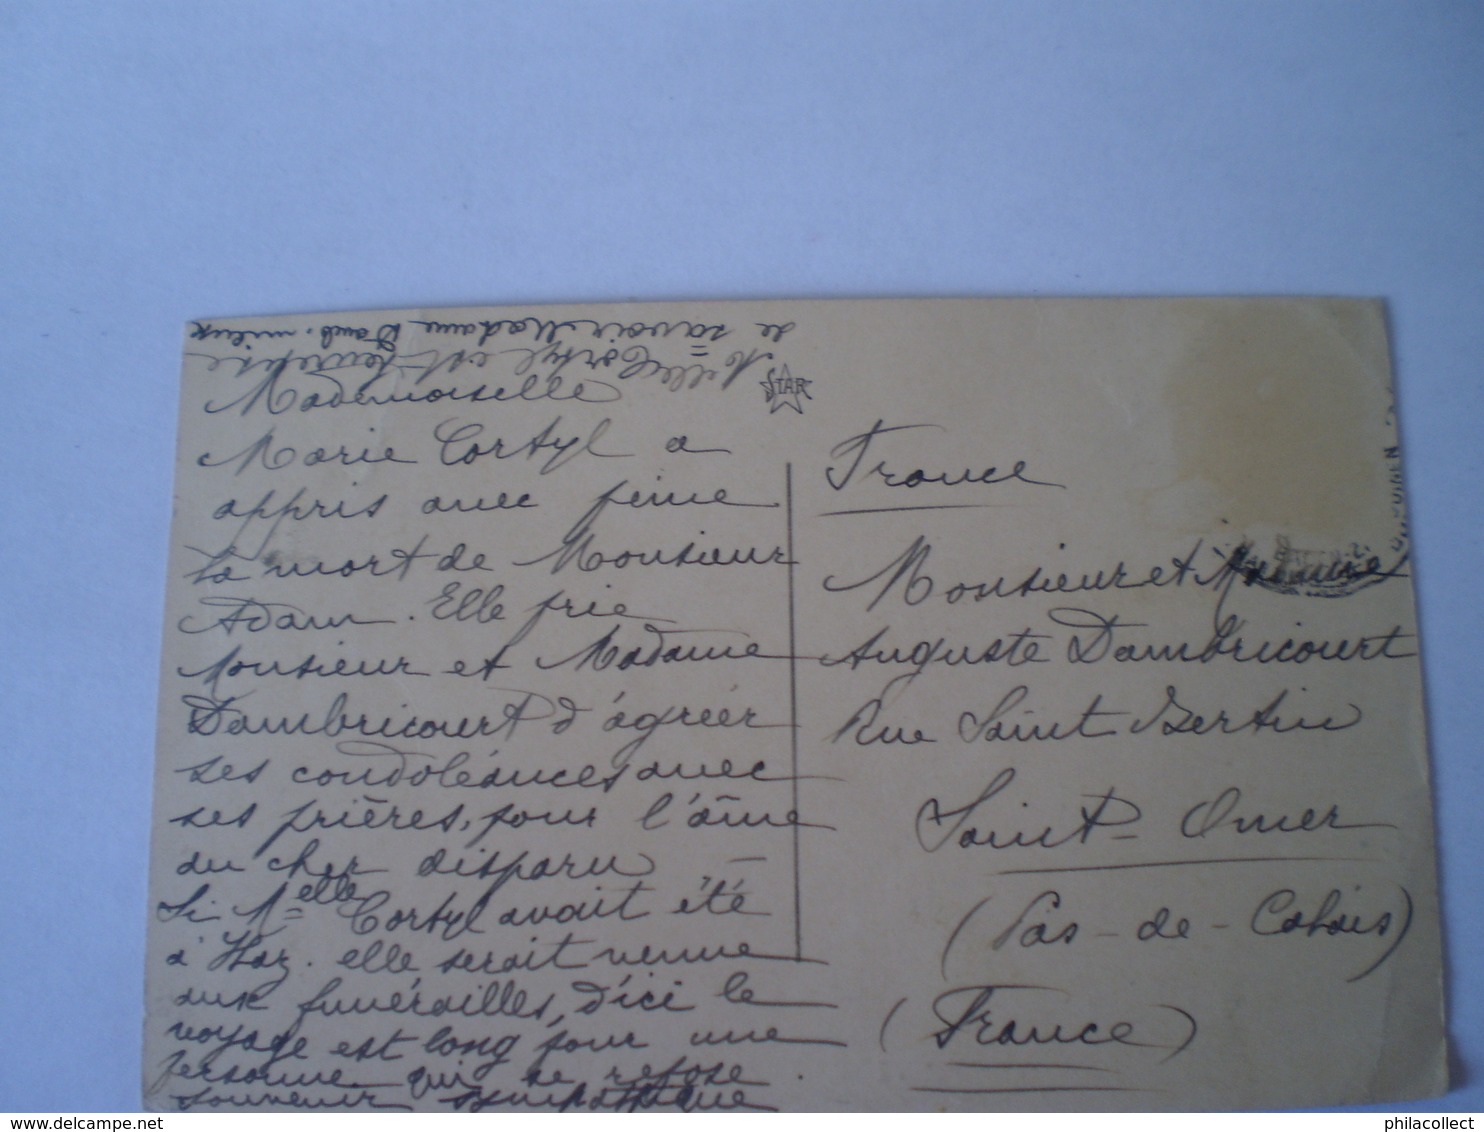 Mademoiselle
Marie Cortyl a
appris avec peine
la mort de Monsieur
Adam. Elle prie
Monsieur et Madame
Dambricourt d'agréer
ses condoléances avec
ses prières, pour l'âme
du cher disparu —
Si Melle Cortyl avait été
à Haz. elle serait venue
aux funérailles, d'ici le
voyage est long pour une
personne qui se repose.
souvenir sympathique
Melle Cortyl est heureuse
de savoir Madame Damb. mieux
STAR
France
Monsieur et Madame
Auguste Dambricourt
Rue Saint Bertin
Saint-Omer
(Pas-de-Calais)
(France)
delcampe.net
philacollect